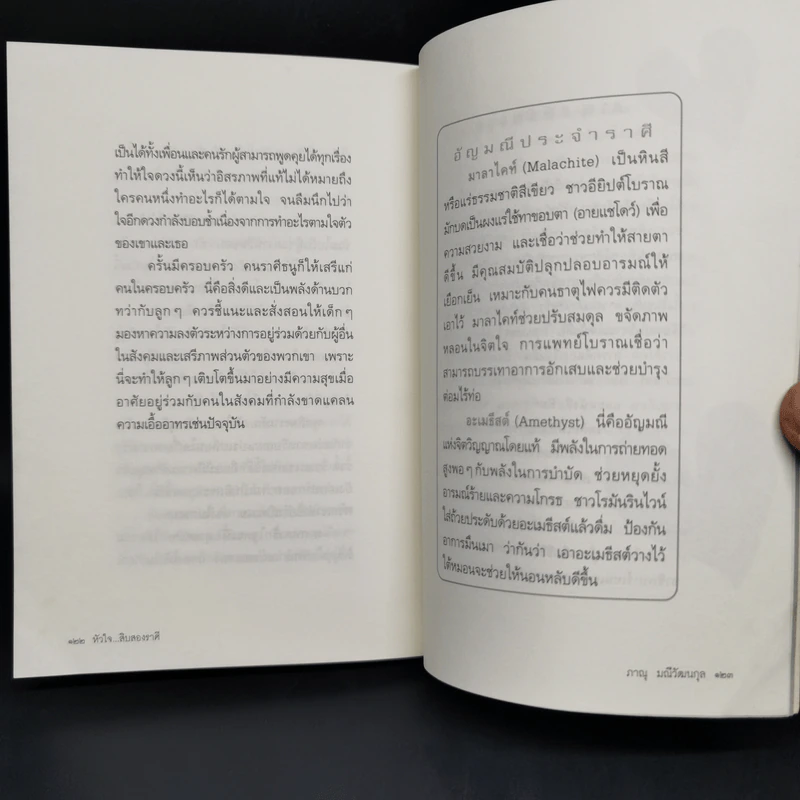 เป็นได้ทั้งเพื่อนและคนรักผู้สามารถพูดคุยได้ทุกเรื่อง
ทำให้ใจดวงนี้เห็นว่าอิสรภาพที่แท้ไม่ได้หมายถึง
ใครคนหนึ่งทำอะไรก็ได้ตามใจ จนลืมนึกไปว่า
ใจอีกดวงกำลังบอบช้ำเนื่องจากการทำอะไรตามใจตัว
ของเขาและเธอ
ครั้นมีครอบครัว คนราศีธนูก็ให้เสรีแก่
คนในครอบครัว นี่คือสิ่งดีและเป็นพลังด้านบวก
ทว่ากับลูกๆ ควรชี้แนะและสั่งสอนให้เด็กๆ
มองหาความลงตัวระหว่างการอยู่ร่วมกับผู้อื่น
ในสังคมและเสรีภาพส่วนตัวของพวกเขา เพราะ
นี่จะทำให้ลูกๆ เติบโตขึ้นมาอย่างมีความสุขเมื่อ
อาศัยอยู่ร่วมกับคนในสังคมที่กำลังขาดแคลน
ความเอื้ออาทรเช่นปัจจุบัน
๑๒๒ หัวใจ...สิบสองราศี
อัญมณีประจำราศี
มาลาไคท์ (Malachite) เป็นหินสี
หรือแร่ธรรมชาติสีเขียว ชาวอียิปต์โบราณ
มักบดเป็นผงแร่ใช้ทาขอบตา (อายแชโดว์) เพื่อ
ความสวยงาม และเชื่อว่าช่วยทำให้สายตา
ดีขึ้น มีคุณสมบัติปลุกปลอบอารมณ์ให้
เยือกเย็น เหมาะกับคนธาตุไฟควรมีติดตัว
เอาไว้ มาลาไคท์ช่วยปรับสมดุล ขจัดภาพ
หลอนในจิตใจ การแพทย์โบราณเชื่อว่า
สามารถบรรเทาอาการอักเสบและช่วยบำรุง
ต่อมไร้ท่อ
อะเมธีสต์ (Amethyst) นี่คืออัญมณี
แห่งจิตวิญญาณโดยแท้ มีพลังในการถ่ายทอด
สูงพอๆ กับพลังในการบำบัด ช่วยหยุดยั้ง
อารมณ์ร้ายและความโกรธ ชาวโรมันรินไวน์
ใส่ถ้วยประดับด้วยอะเมธีสต์แล้วดื่ม ป้องกัน
อาการมึนเมา ว่ากันว่า เอาอะเมธีสต์วางไว้
ใต้หมอนจะช่วยให้นอนหลับดีขึ้น
ภาณุ มณีวัฒนกุล ๑๒๓